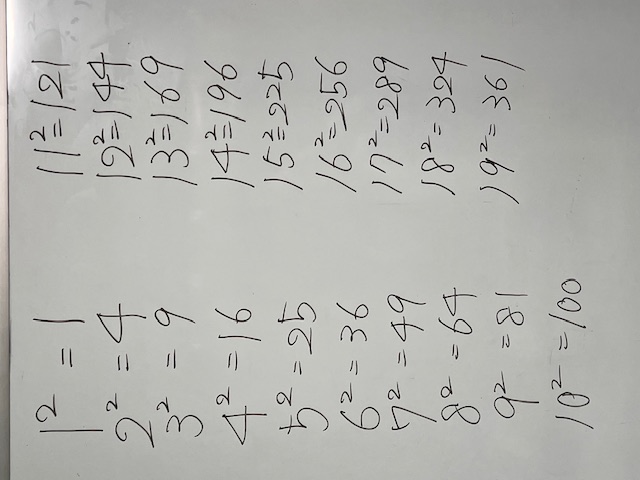 1² = 1
2² = 4
3² = 9
4² = 16
5² = 25
6² = 36
7² = 49
8² = 64
9² = 81
10² = 100
11² = 121
12² = 144
13² = 169
14² = 196
15² = 225
16² = 256
17² = 289
18² = 324
19² = 361